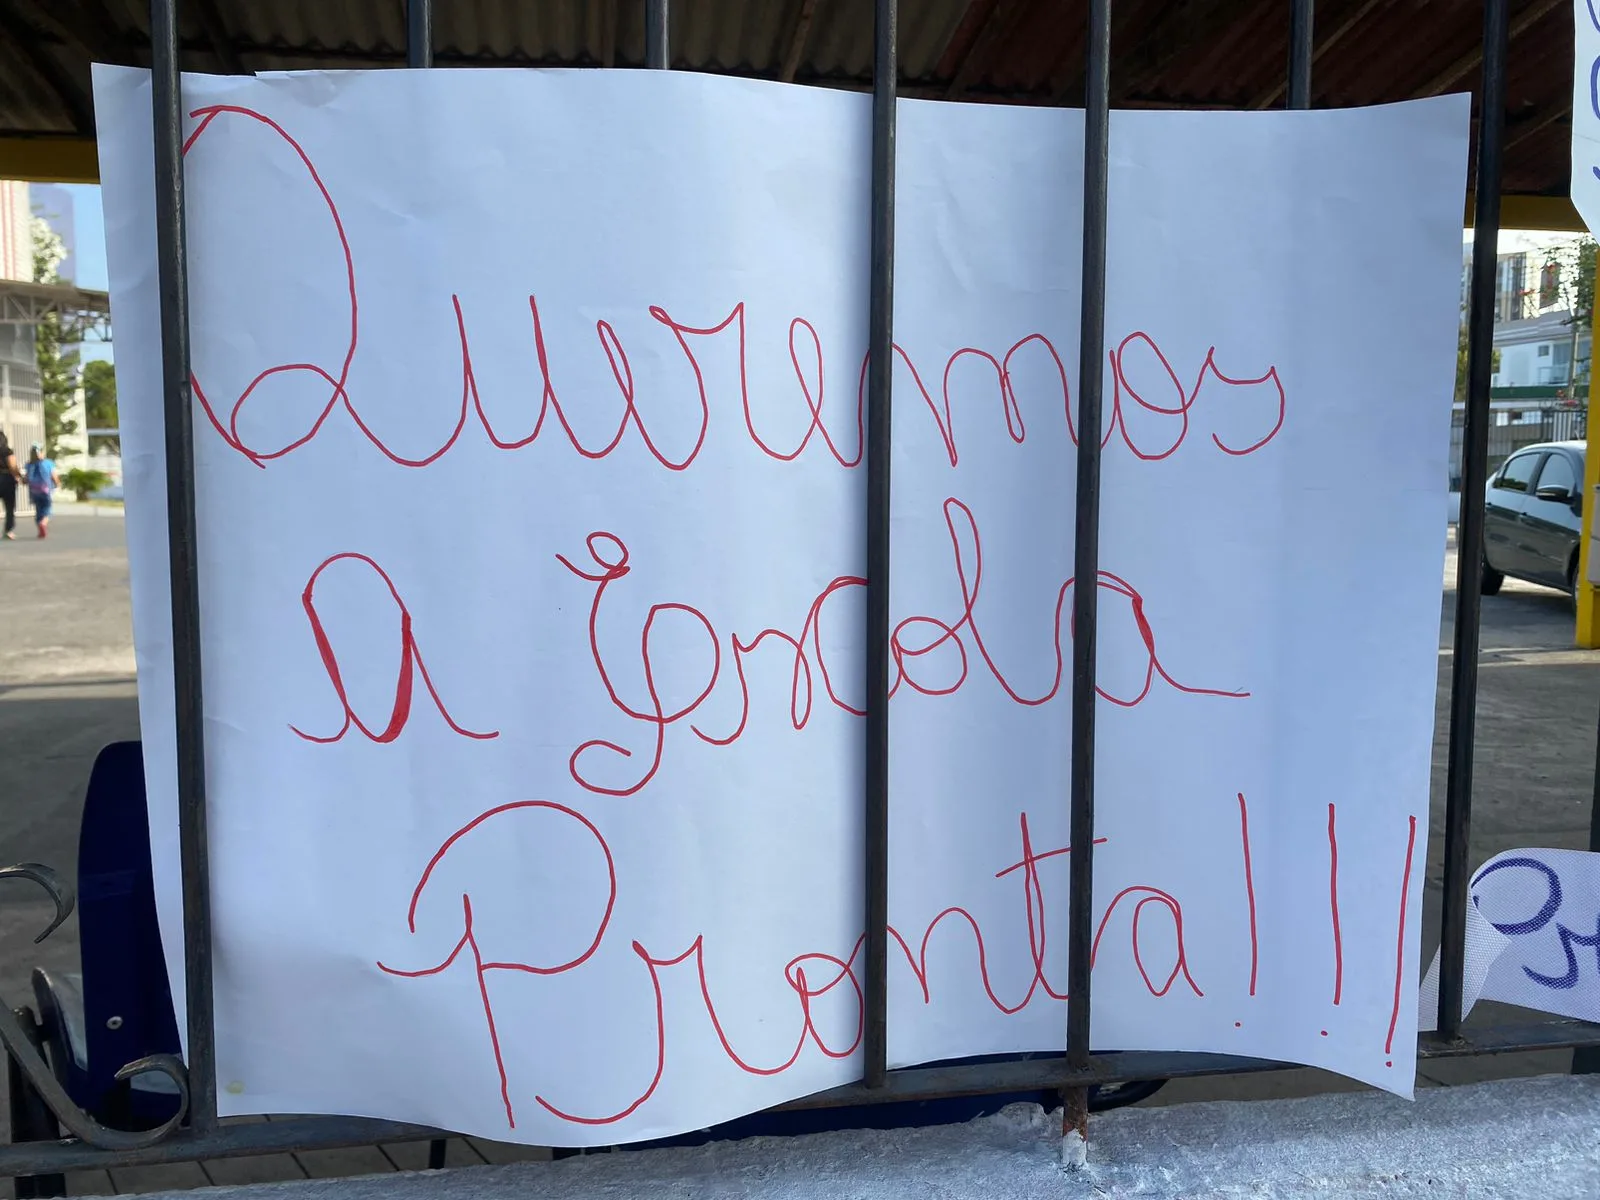 Queremos
a Escola
Pronta!!!